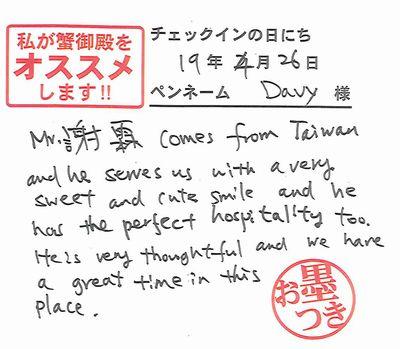 私が蟹御殿を
オススメ
します!!
チェックインの日にち
19年 4月26日
ペンネーム Davy 様
Mr.謝霖 comes from Taiwan
and he serves us with a very
sweet and cute smile and he
has the perfect hospitality too.
He is very thoughtful and we have
a great time in this
place.
お墨つき